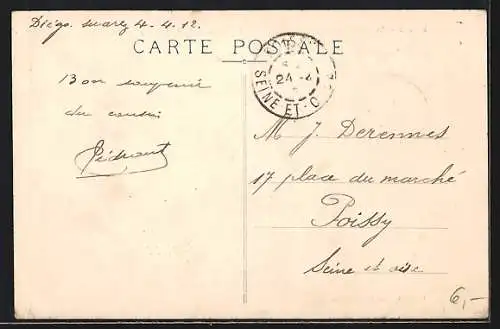 Diégo. suarez 4-4.12.
CARTE POSTALE
24 - 4
SEINE ET-O
Bon souvenir
du cousin
M J. Derennes
17 place du marché
Poissy
Seine et oise
6,-